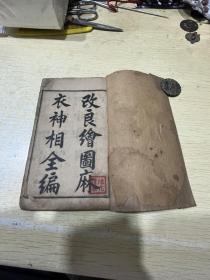 改良繪圖麻
衣神相全編